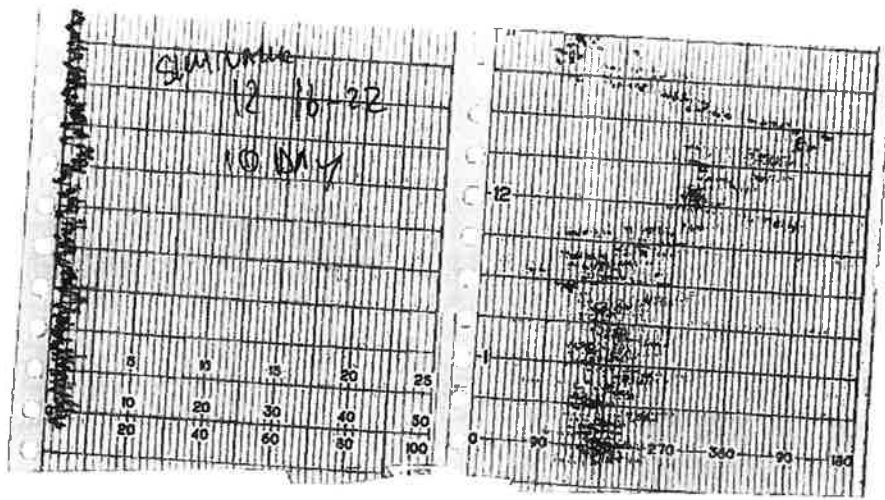 12-16-22
10 DAY
5 10 15 20 25
0 10 20 30 40 50
20 40 60 80 100
12
1
0 90 270 360 90 180